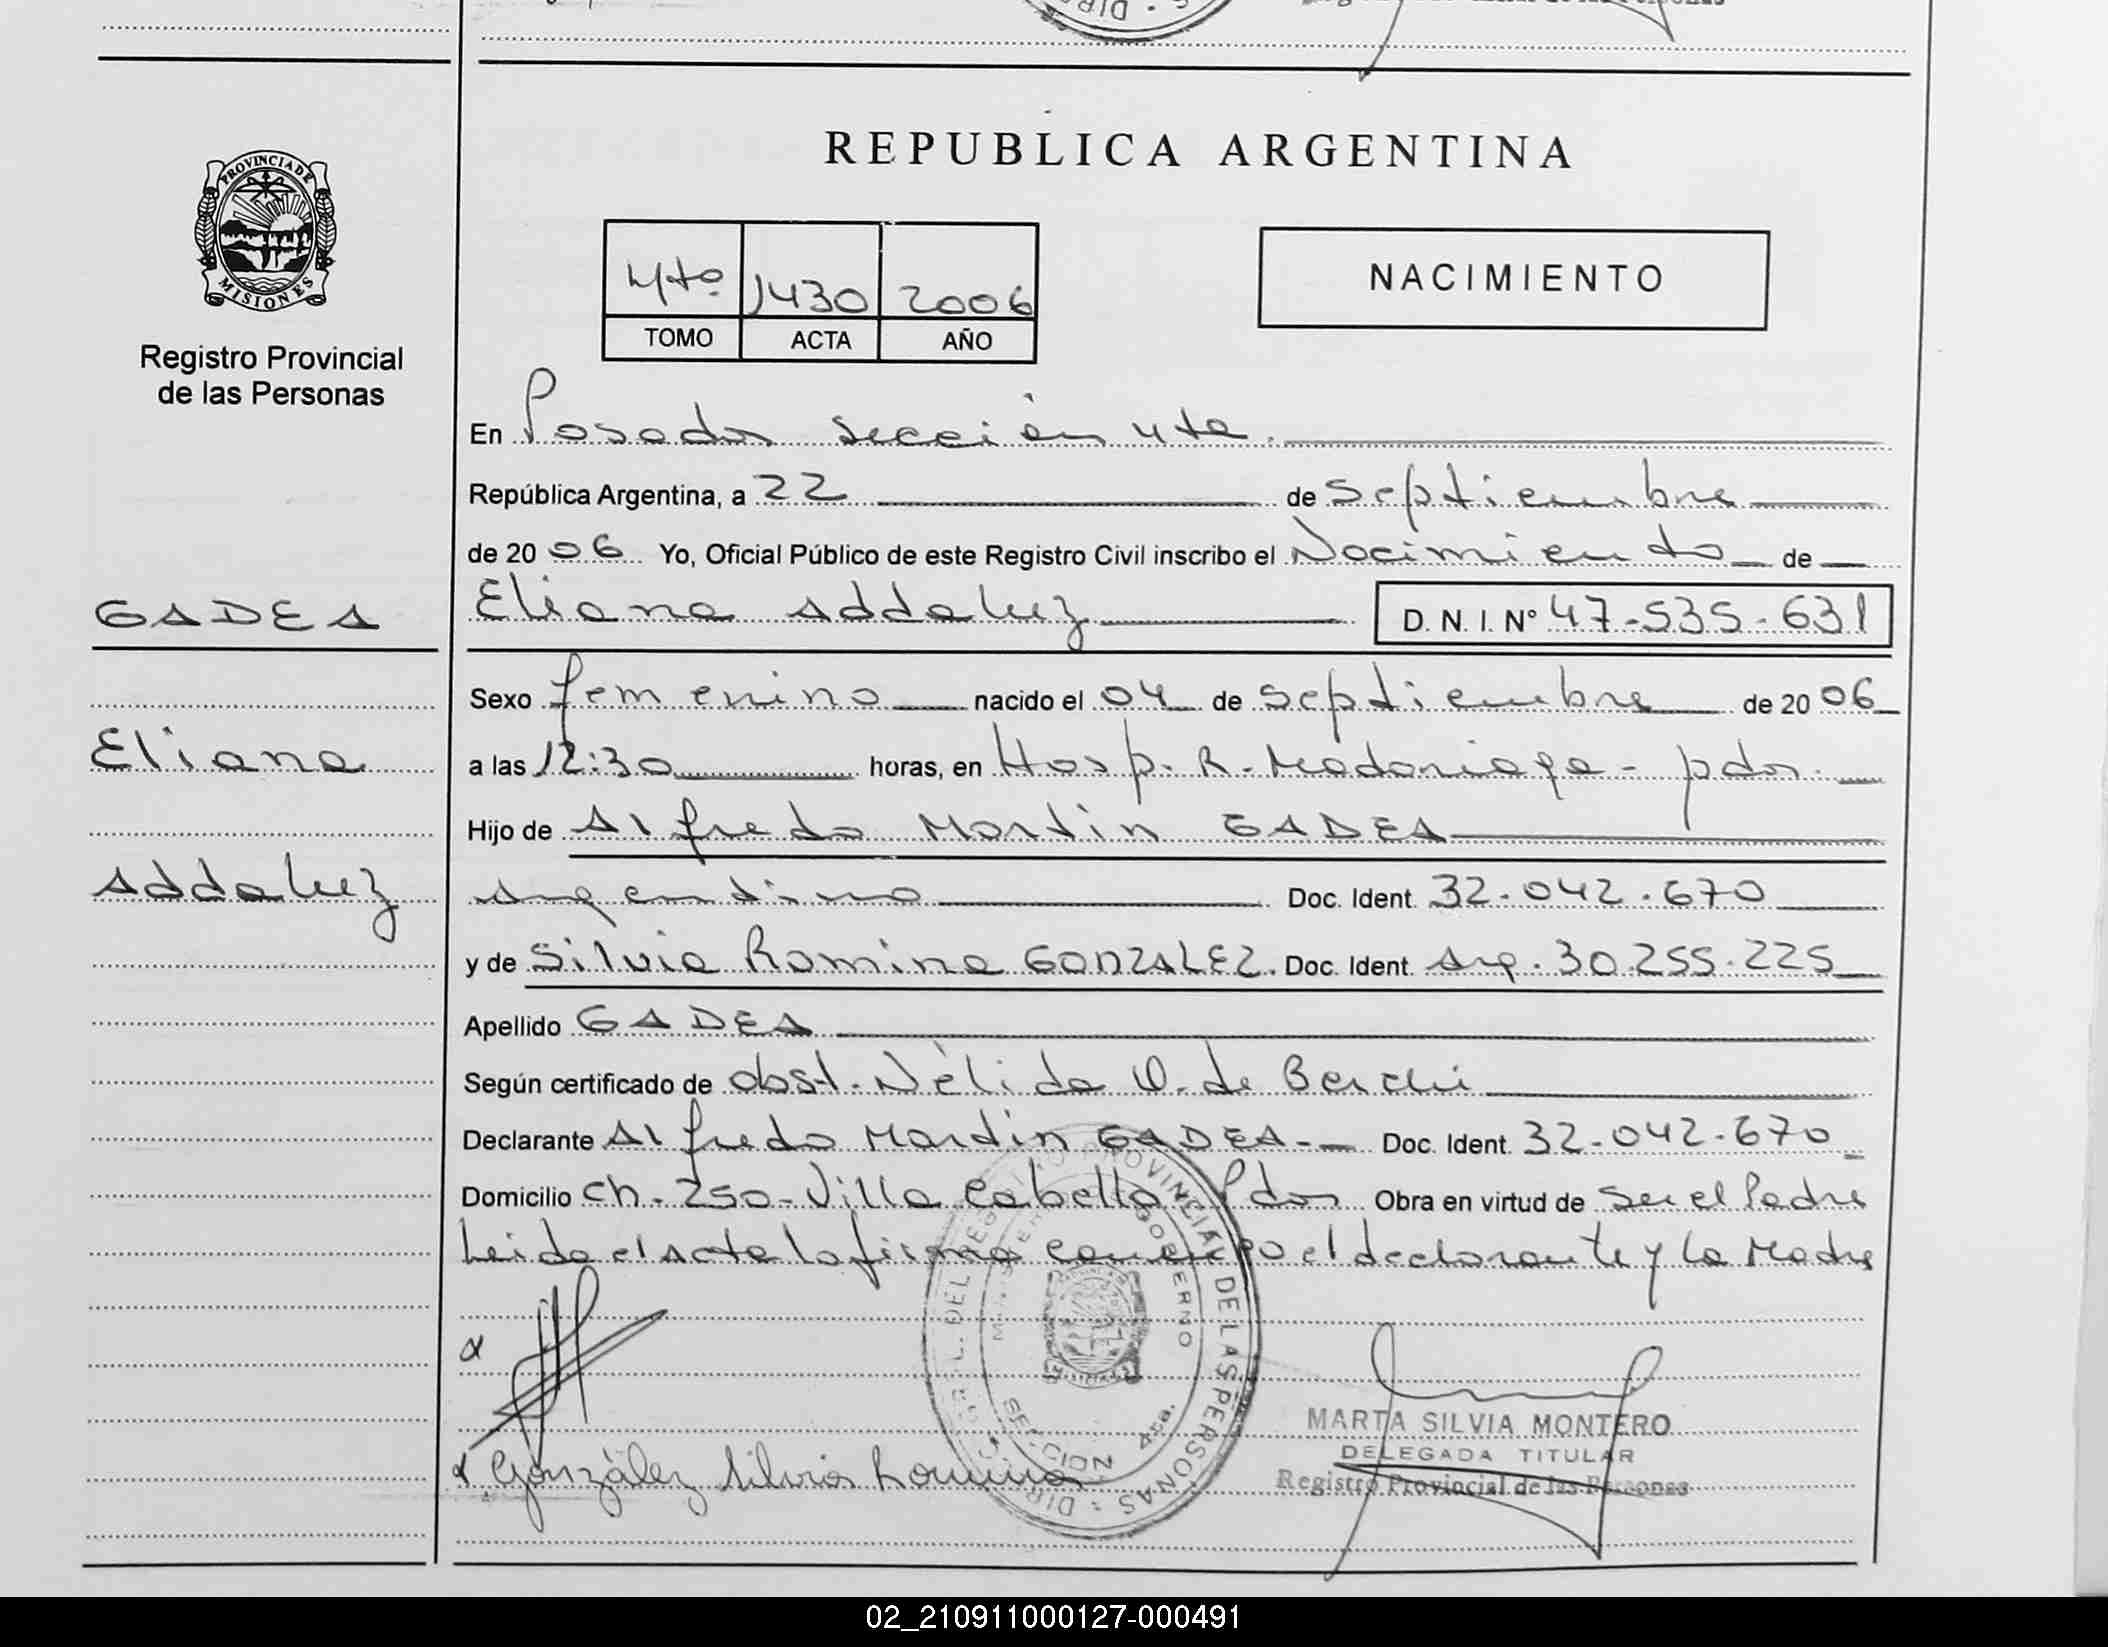 REPUBLICA ARGENTINA
PROVINCIA DE
MISIONES
Registro Provincial
de las Personas
4to 1430 2006
TOMO ACTA AÑO
NACIMIENTO
En Posadas sección 4ta.
República Argentina, a 22 de Septiembre
de 2006 Yo, Oficial Público de este Registro Civil inscribo el Nacimiento de
GADEA
Eliana Addaluz D. N. I. N° 47-535-631
Sexo femenino nacido el 04 de Septiembre de 2006
Eliana
a las 12:30 horas, en Hosp. R. Madariaga - pdas.
Hijo de Alfredo Martin GADEA
Addaluz
Argentino Doc. Ident. 32.042.670
y de Silvia Romina GONZALEZ. Doc. Ident. Arg. 30.255.225
Apellido GADEA
Según certificado de obst. Nélida D. de
Declarante Alfredo Martin GADEA-- Doc. Ident. 32-042-670
Domicilio Ch. 250-Villa Cabello Pdas Obra en virtud de Ser el Padre
Leida el acta la firma conmigo el declarante y la Madre
DEL REGISTRO PROVINCIAL DE LAS PERSONAS
GOBIERNO
SECCION 4ta.
MARTA SILVIA MONTERO
DELEGADA TITULAR
Registro Provincial de las Personas
González Silvia Romina
02_210911000127-000491